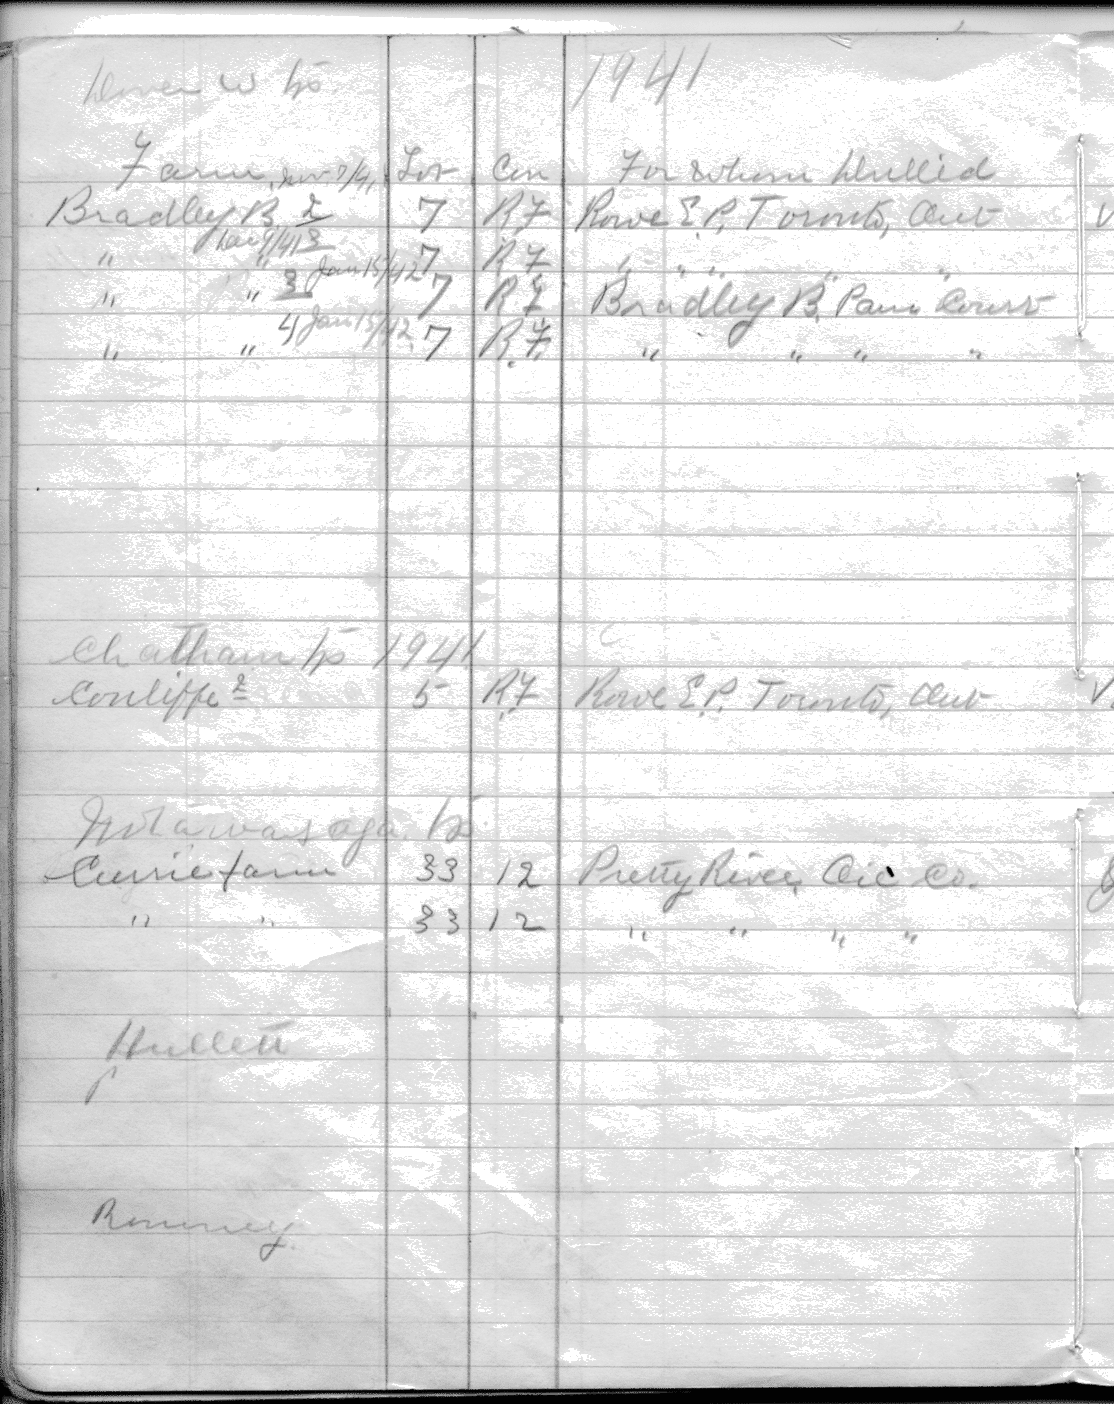 Dover W Tp. 1941
Farm Lot Con For Whom Drilled
Bradley B 2 7 R.F. Rowe E.P. Toronto, Ont
" " 3 7 R.F. " " " " "
" " 3 Jan 15/42 7 R.F. Bradley B. Pain Court
" " 4 Jan 15/42 7 R.F. " " " "
Chatham Tp 1941
Conliffe 2 5 R.F. Rowe E.P. Toronto, Ont
Notawasaga. Tp.
Currie farm 33 12 Pretty River Oil Co.
" " 33 12 " " " "
Hullett
Romney.